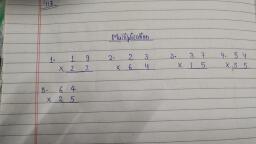 Multiplication
1. 1 9 2. 2 3 3. 3 7 4. 5 4
x 2 3 x 6 4 x 1 5 x 3 5
5. 6 4
x 2 5